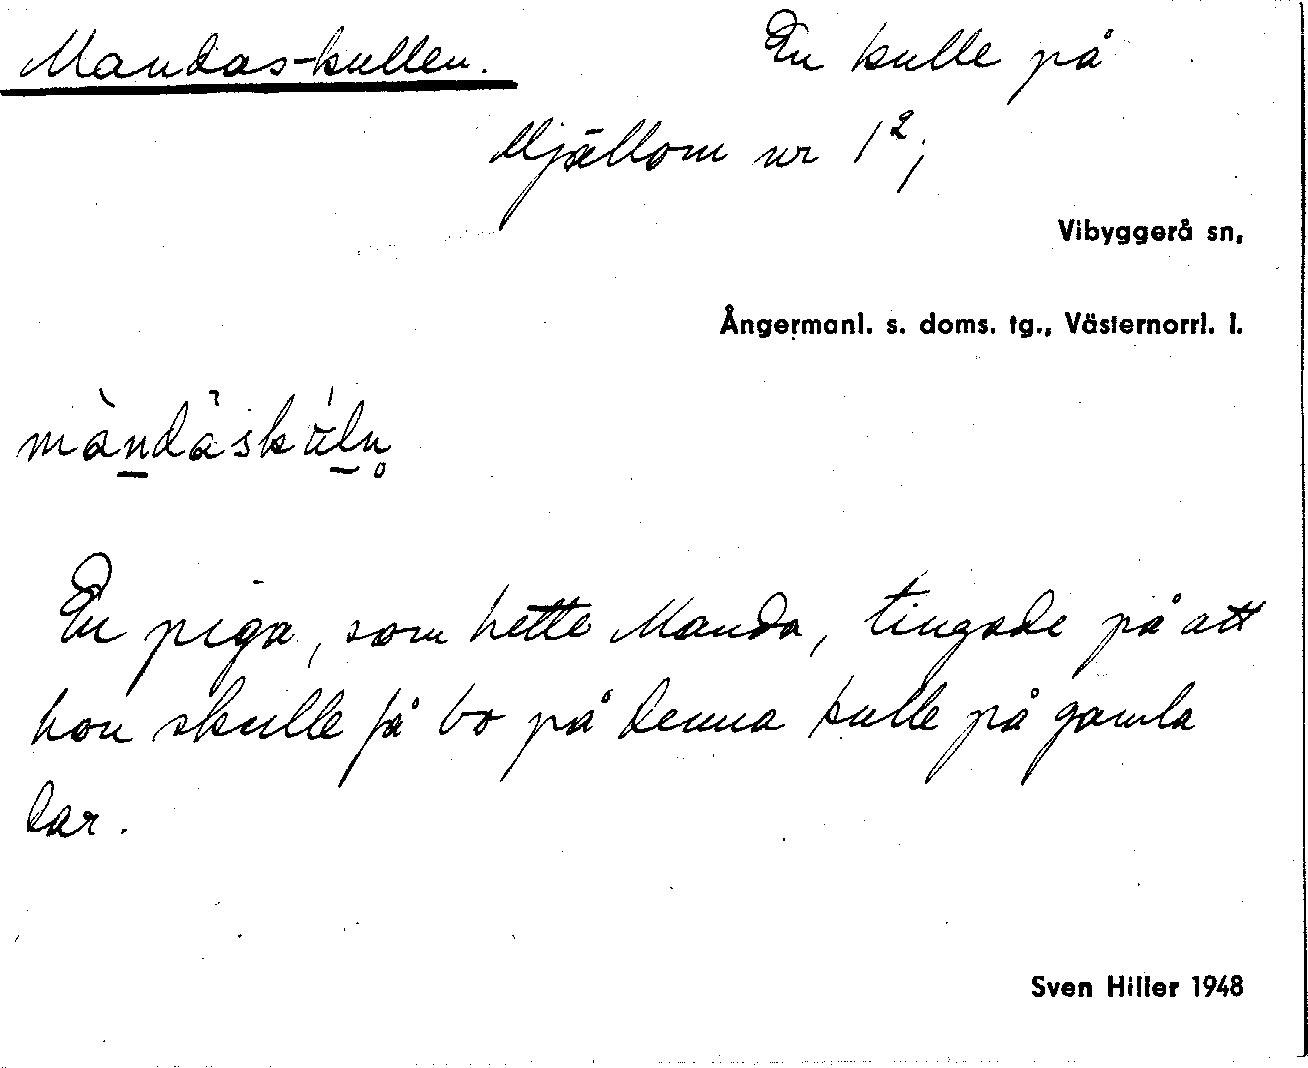 Mandas-kullen. En kulle på
Mjällom nr 1²;
Vibyggerå sn,
Ångermanl. s. doms. tg., Västernorrl. l.
En piga, som hette Manda, tingade på att
hon skulle få bo på denna kulle på gamla
dar.
Sven Hiller 1948